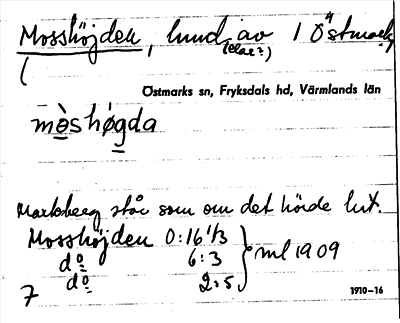 Mosshöjden, hund av 1/4 Östmark
(elae?)
Östmarks sn, Fryksdals hd, Värmlands län
mòshøgda
Markberg står som om det hörde hit.
Mosshöjden 0:16 1/3
dº 6:3
dº 2:5
ml 1909
7
1910-16